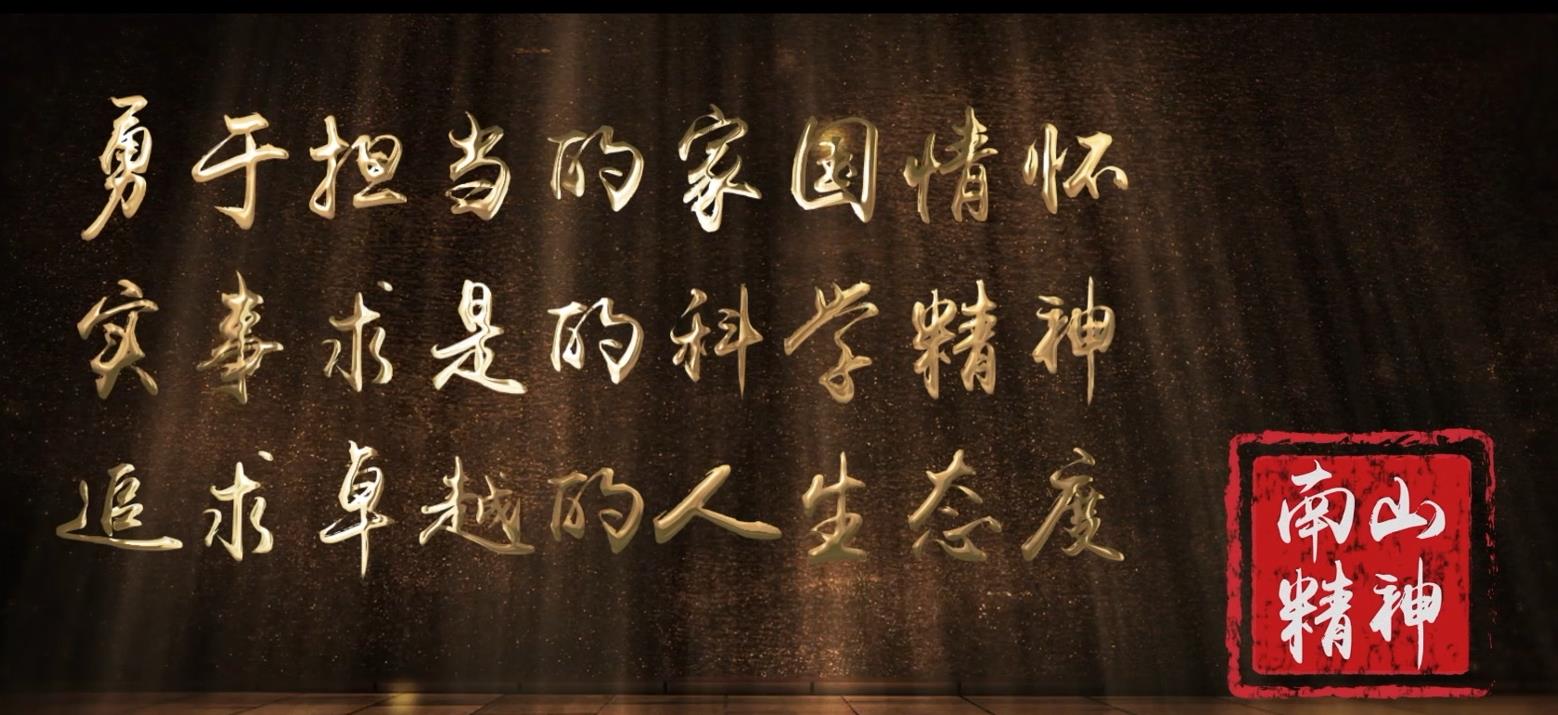 勇于担当的家国情怀
实事求是的科学精神
追求卓越的人生态度
南山
精神